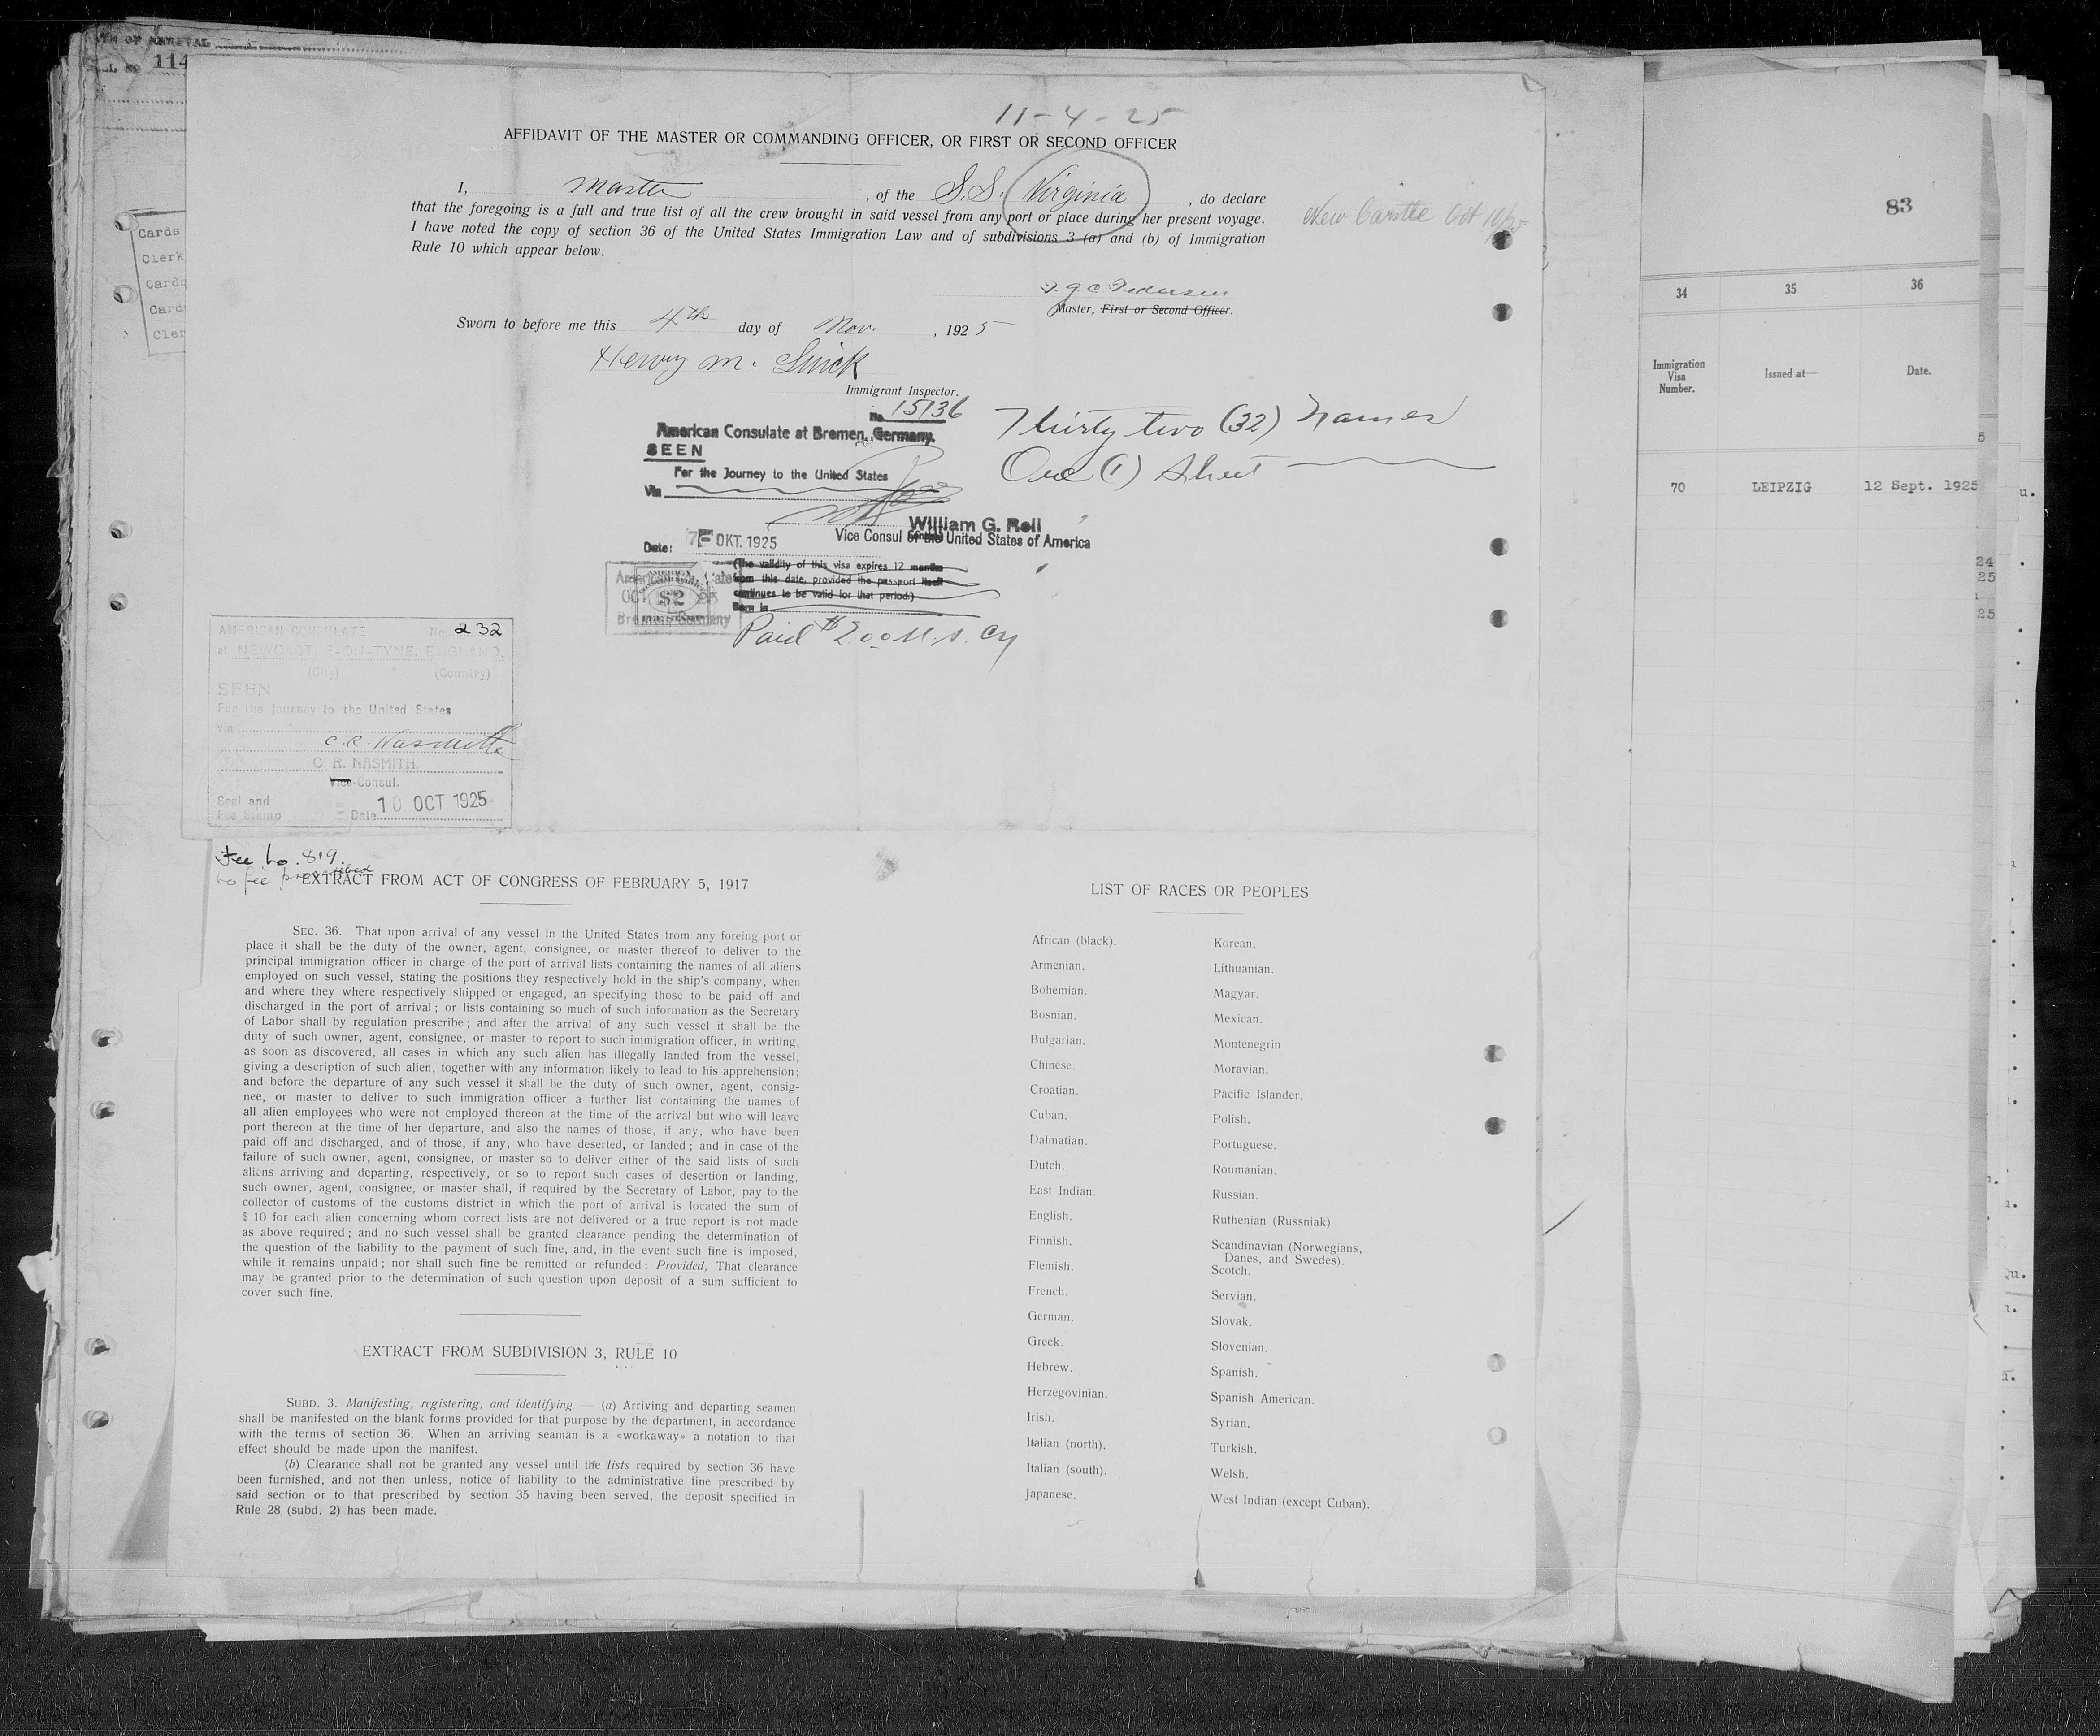 OF ARRIVAL
114
11-4-25
AFFIDAVIT OF THE MASTER OR COMMANDING OFFICER, OR FIRST OR SECOND OFFICER
I, Master, of the S.S. Virginia, do declare
that the foregoing is a full and true list of all the crew brought in said vessel from any port or place during her present voyage.
I have noted the copy of section 36 of the United States Immigration Law and of subdivisions 3 (a) and (b) of Immigration
Rule 10 which appear below.
Oct 10/25
Master, First or Second Officer.
Sworn to before me this 4th day of Nov., 1925
Henry M.
Immigrant Inspector.
No. 15136
American Consulate at Bremen, Germany.
SEEN
For the Journey to the United States
Via
William G. Roll
Vice Consul of the United States of America
Date: 7 OKT. 1925
(The validity of this visa expires 12 months
from this date, provided the passport itself
continues to be valid for that period.)
Born in
$2
Bremen, Germany
Paid $2.00 U.S. Cy
Thirty two (32) names
One (1) Sheet
AMERICAN CONSULATE No. 232
at NEWCASTLE-ON-TYNE, ENGLAND.
(City) (Country)
SEEN
For the journey to the United States
via
C. R. Nasmith
C. R. NASMITH.
Vice-Consul.
Seal and
Fee Stamp
Date 10 OCT 1925
Fee No. 819.
no fee prescribed
EXTRACT FROM ACT OF CONGRESS OF FEBRUARY 5, 1917
SEC. 36. That upon arrival of any vessel in the United States from any foreing port or
place it shall be the duty of the owner, agent, consignee, or master thereof to deliver to the
principal immigration officer in charge of the port of arrival lists containing the names of all aliens
employed on such vessel, stating the positions they respectively hold in the ship's company, when
and where they where respectively shipped or engaged, an specifying those to be paid off and
discharged in the port of arrival; or lists containing so much of such information as the Secretary
of Labor shall by regulation prescribe; and after the arrival of any such vessel it shall be the
duty of such owner, agent, consignee, or master to report to such immigration officer, in writing,
as soon as discovered, all cases in which any such alien has illegally landed from the vessel,
giving a description of such alien, together with any information likely to lead to his apprehension;
and before the departure of any such vessel it shall be the duty of such owner, agent, consig-
nee, or master to deliver to such immigration officer a further list containing the names of
all alien employees who were not employed thereon at the time of the arrival but who will leave
port thereon at the time of her departure, and also the names of those, if any, who have been
paid off and discharged, and of those, if any, who have deserted, or landed; and in case of the
failure of such owner, agent, consignee, or master so to deliver either of the said lists of such
aliens arriving and departing, respectively, or so to report such cases of desertion or landing,
such owner, agent, consignee, or master shall, if required by the Secretary of Labor, pay to the
collector of customs of the customs district in which the port of arrival is located the sum of
$ 10 for each alien concerning whom correct lists are not delivered or a true report is not made
as above required; and no such vessel shall be granted clearance pending the determination of
the question of the liability to the payment of such fine, and, in the event such fine is imposed,
while it remains unpaid; nor shall such fine be remitted or refunded: Provided, That clearance
may be granted prior to the determination of such question upon deposit of a sum sufficient to
cover such fine.
EXTRACT FROM SUBDIVISION 3, RULE 10
SUBD. 3. Manifesting, registering, and identifying — (a) Arriving and departing seamen
shall be manifested on the blank forms provided for that purpose by the department, in accordance
with the terms of section 36. When an arriving seaman is a «workaway» a notation to that
effect should be made upon the manifest.
(b) Clearance shall not be granted any vessel until the lists required by section 36 have
been furnished, and not then unless, notice of liability to the administrative fine prescribed by
said section or to that prescribed by section 35 having been served, the deposit specified in
Rule 28 (subd. 2) has been made.
LIST OF RACES OR PEOPLES
African (black).
Armenian.
Bohemian.
Bosnian.
Bulgarian.
Chinese.
Croatian.
Cuban.
Dalmatian.
Dutch.
East Indian.
English.
Finnish.
Flemish.
French.
German.
Greek.
Hebrew.
Herzegovinian.
Irish.
Italian (north).
Italian (south).
Japanese.
Korean.
Lithuanian.
Magyar.
Mexican.
Montenegrin
Moravian.
Pacific Islander.
Polish.
Portuguese.
Roumanian.
Russian.
Ruthenian (Russniak)
Scandinavian (Norwegians,
Danes, and Swedes).
Scotch.
Servian.
Slovak.
Slovenian.
Spanish.
Spanish American.
Syrian.
Turkish.
Welsh.
West Indian (except Cuban).
Cards
Clerk
Cards
Card
Cler
83
34 35 36
Immigration
Visa
Number.
Issued at—
Date.
5
70 LEIPZIG 12 Sept. 1925
24
25
25